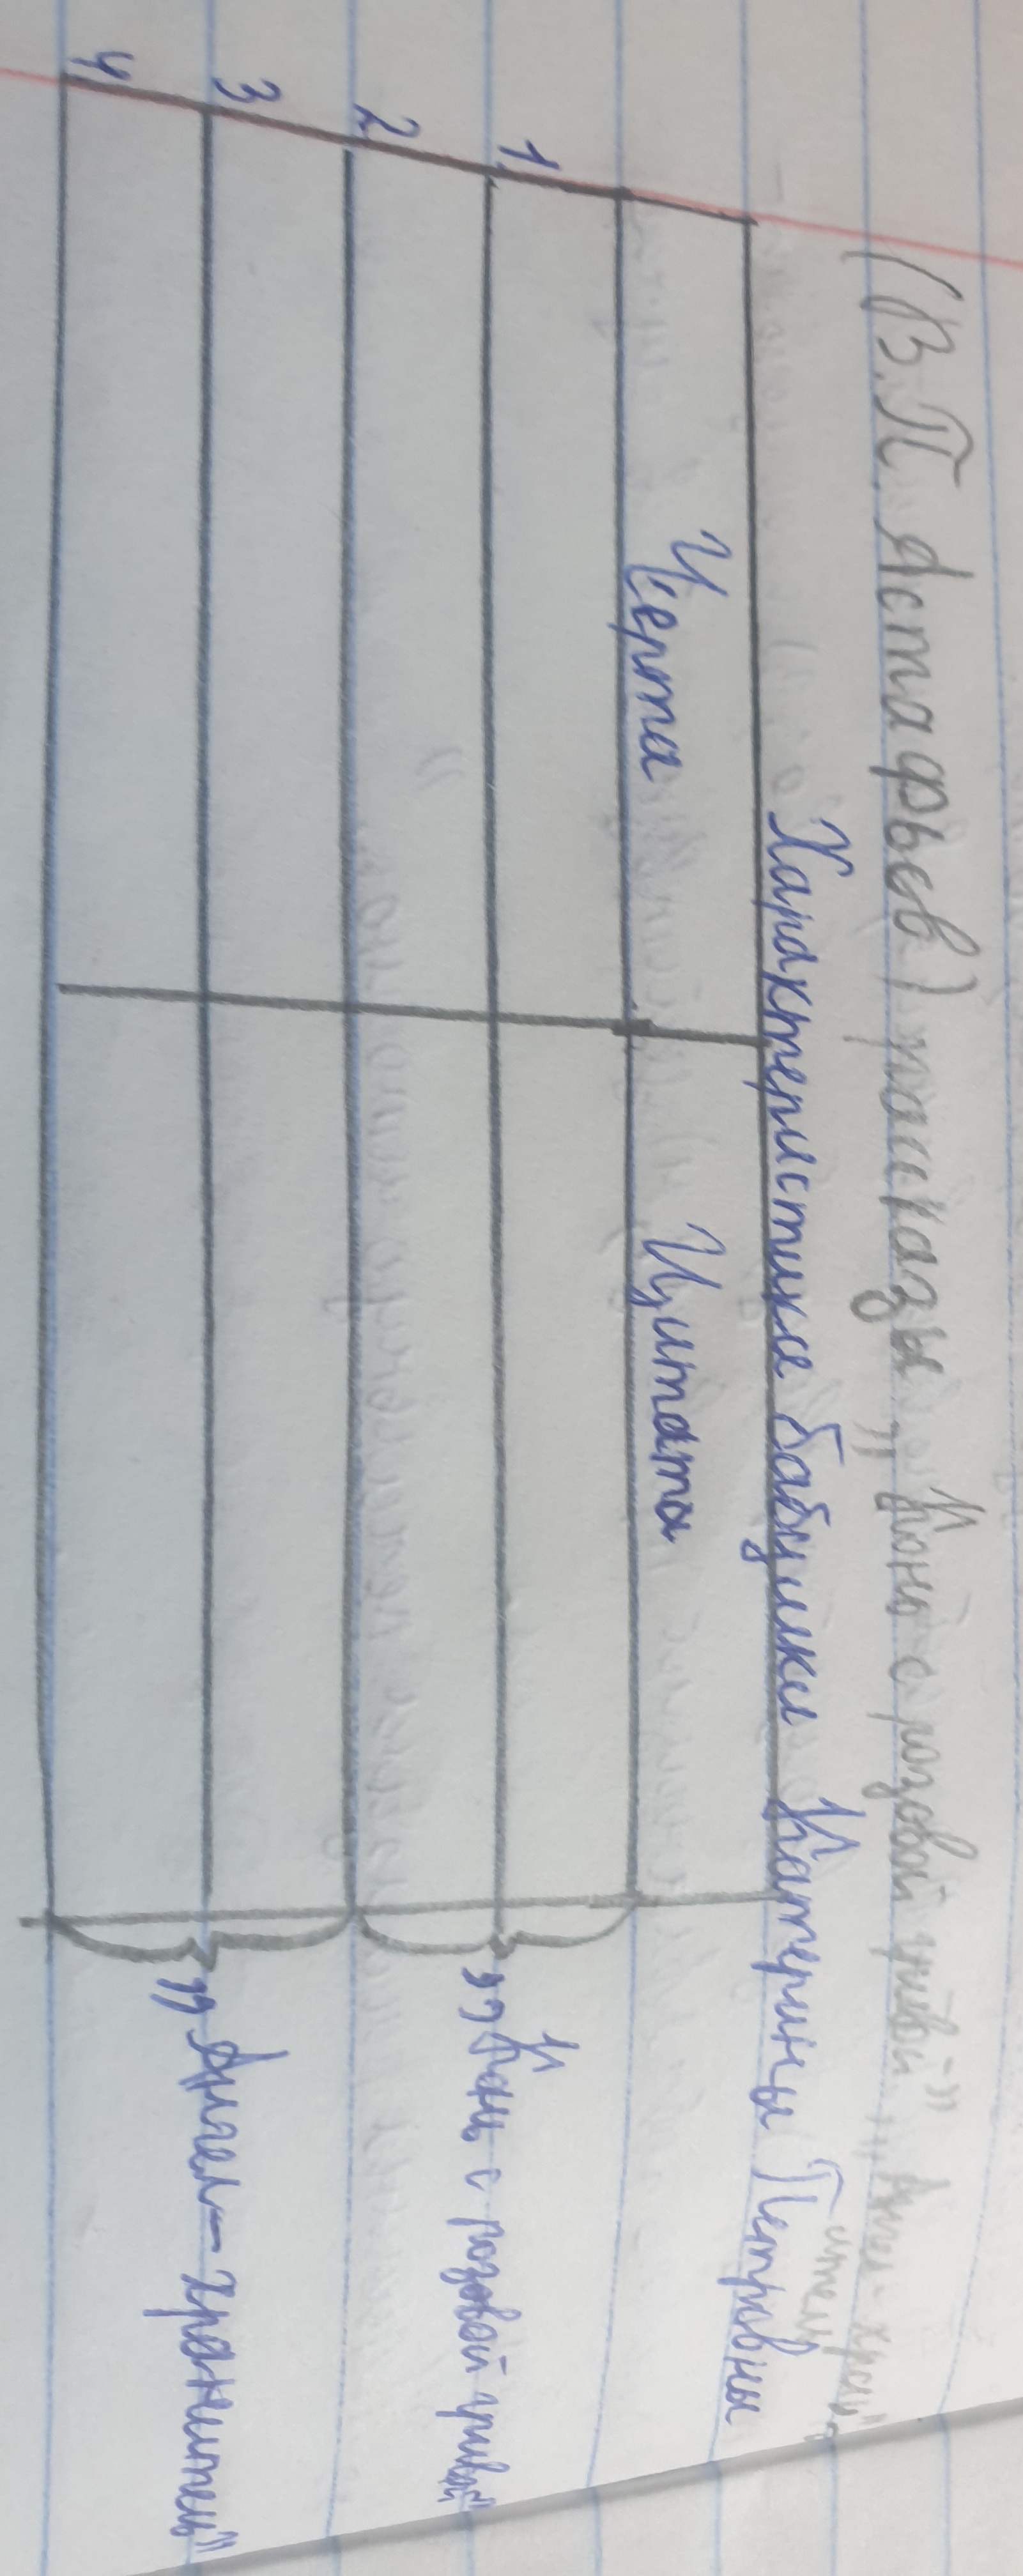 (В.П. Астафьев) рассказы „Конь с розовой гривой” „Ангел-хран-
итель”
Характеристика бабушки Катерины Петровны
Черта Цитата
1
2
„Конь с розовой гривой”
3
4
„Ангел-хранитель”